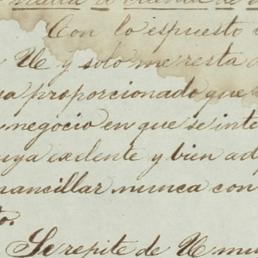 Con lo espuesto
U y solo me resta
proporcionado que
negocio en que se inte
uya exelente y bien ad
mancillar nunca con
to.
Se repite de U mu